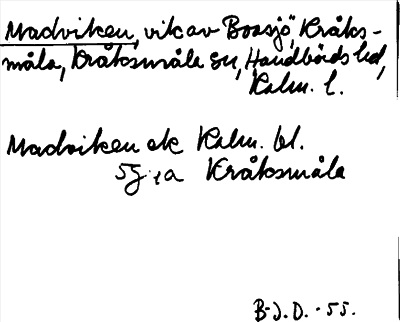 Madviken, vik av Boasjö, Kråks-
måla, Kråksmåla sn, Handbörds hd,
Kalm. l.
Madviken ek Kalm. bl.
5g ; a Kråksmåla
B.J.D. -55.